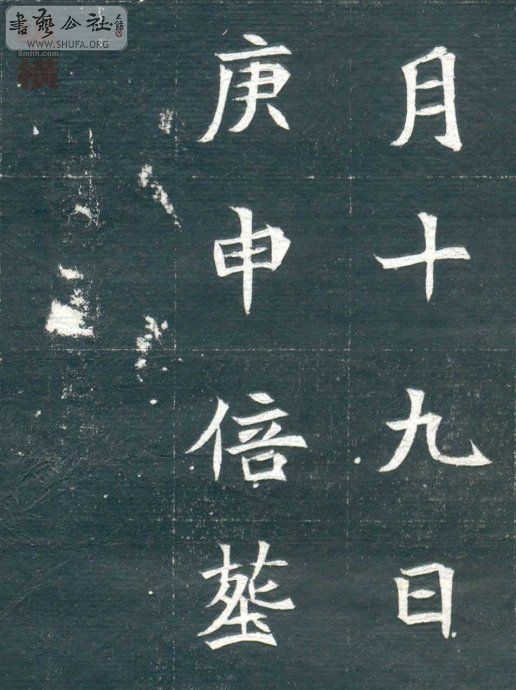 月十九日
庚申倍塟
書藝公社
WWW.SHUFA.ORG
8mhh.com